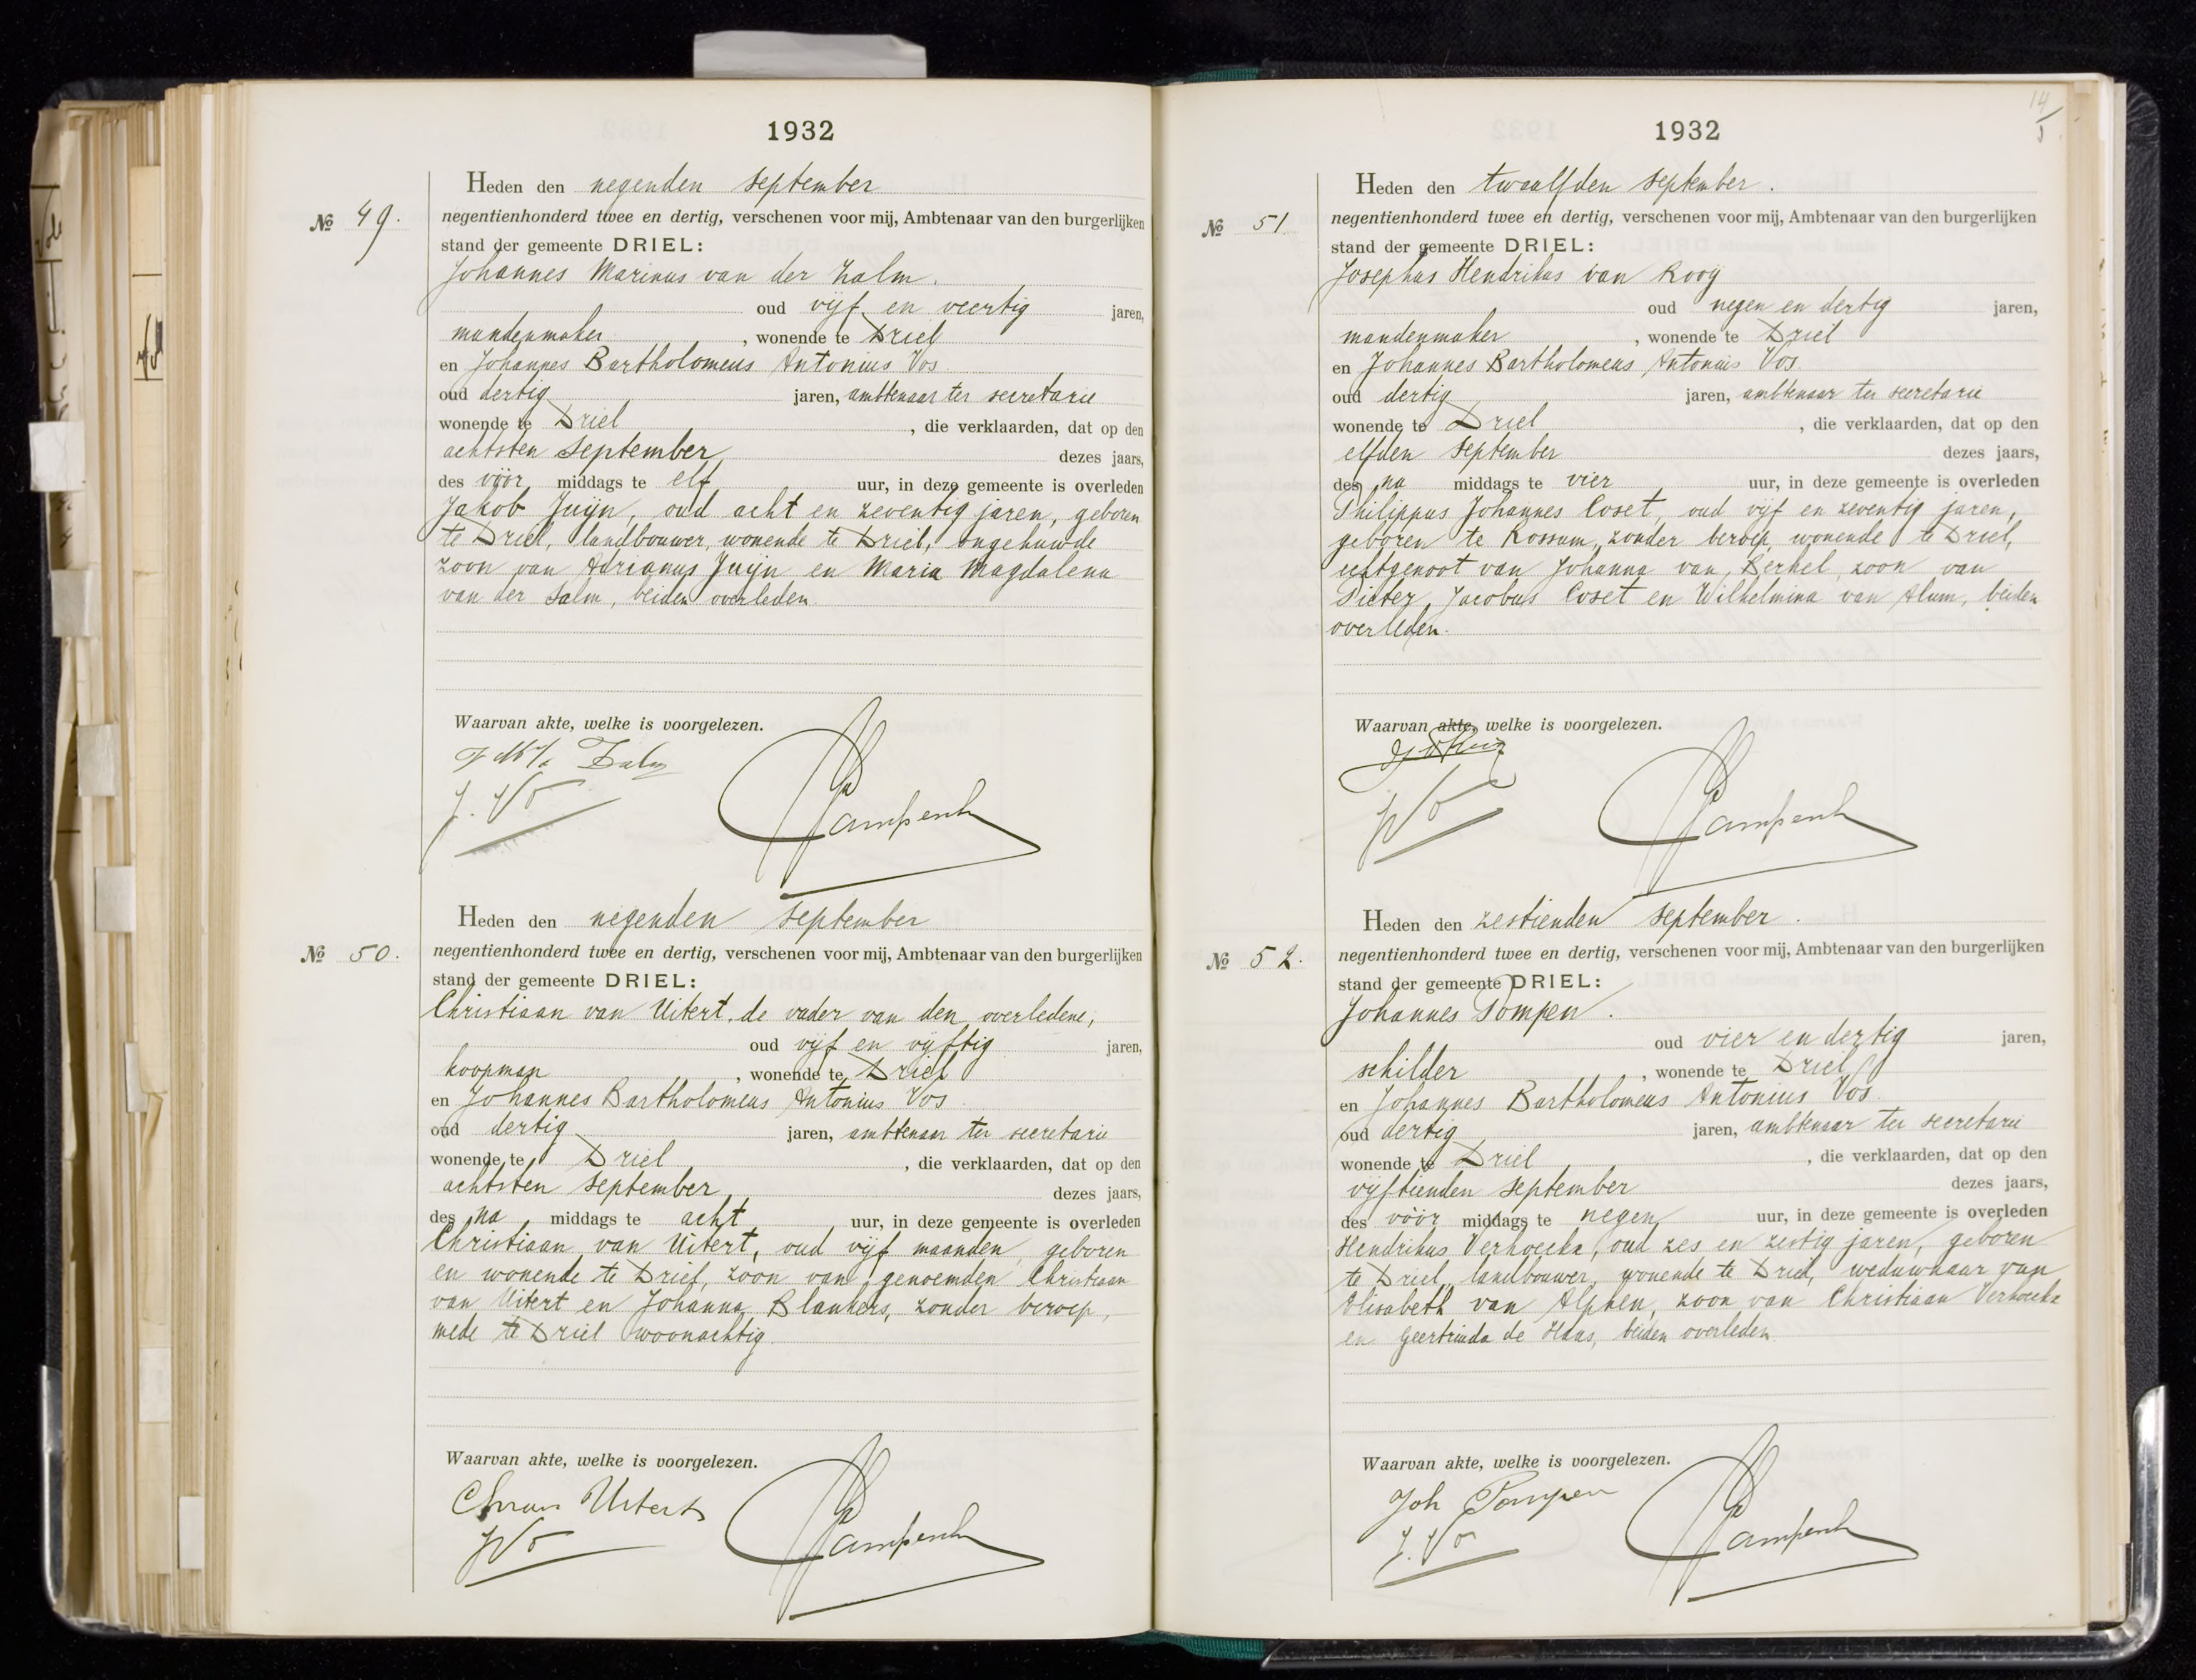 1932
Heden den negenden september
№ 49.
negentienhonderd twee en dertig, verschenen voor mij, Ambtenaar van den burgerlijken
stand der gemeente DRIEL:
Johannes Marinus van der Zalm.
oud vijf en veertig jaren,
mandenmaker, wonende te Driel
en Johannes Bartholomeus Antonius Vos
oud dertig jaren, ambtenaar ter secretarie
wonende te Driel, die verklaarden, dat op den
achtsten september dezes jaars,
des vóór middags te elf uur, in deze gemeente is overleden
Jakob Juijn, oud acht en zeventig jaren, geboren
te Driel, landbouwer, wonende te Driel, ongehuwde
zoon van Adrianus Juijn en Maria Magdalena
van der Salm, beiden overleden.
Waarvan akte, welke is voorgelezen.
J. Vos
Heden den negenden september
№ 50.
negentienhonderd twee en dertig, verschenen voor mij, Ambtenaar van den burgerlijken
stand der gemeente DRIEL:
Christiaan van Uitert, de vader van den overledene,
oud vijf en vijftig jaren,
koopman, wonende te Driel
en Johannes Bartholomeus Antonius Vos
oud dertig jaren, ambtenaar ter secretarie
wonende te Driel, die verklaarden, dat op den
achtsten september dezes jaars,
des na middags te acht uur, in deze gemeente is overleden
Christiaan van Uitert, oud vijf maanden, geboren
en wonende te Driel, zoon van genoemden Christiaan
van Uitert en Johanna Blankers, zonder beroep,
mede te Driel woonachtig.
Waarvan akte, welke is voorgelezen.
Uitert
JVos
1932
14
Heden den twaalfden september.
№ 51.
negentienhonderd twee en dertig, verschenen voor mij, Ambtenaar van den burgerlijken
stand der gemeente DRIEL:
Josephus Hendrikus van Rooij
oud negen en dertig jaren,
mandenmaker, wonende te Driel
en Johannes Bartholomeus Antonius Vos
oud dertig jaren, ambtenaar ter secretarie
wonende te Driel, die verklaarden, dat op den
elfden september dezes jaars,
des na middags te vier uur, in deze gemeente is overleden
Philippus Johannes Coset, oud vijf en zeventig jaren,
geboren te Rossum, zonder beroep, wonende te Driel,
echtgenoot van Johanna van Berkel, zoon van
Pieter Jacobus Coset en Wilhelmina van Alum, beiden
overleden.
Waarvan akte, welke is voorgelezen.
JVos
Heden den zestienden september.
№ 52.
negentienhonderd twee en dertig, verschenen voor mij, Ambtenaar van den burgerlijken
stand der gemeente DRIEL:
Johannes Pompen.
oud vier en dertig jaren,
schilder, wonende te Driel
en Johannes Bartholomeus Antonius Vos
oud dertig jaren, ambtenaar ter secretarie
wonende te Driel, die verklaarden, dat op den
vijftienden september dezes jaars,
des vóór middags te negen uur, in deze gemeente is overleden
Hendrikus Verhoeckx, oud zes en zestig jaren, geboren
te Driel, landbouwer, wonende te Driel, weduwnaar van
Elisabeth van Alphen, zoon van Christiaan Verhoeckx
en Geertruida de Haas, beiden overleden.
Waarvan akte, welke is voorgelezen.
Joh Pompen
J. Vos